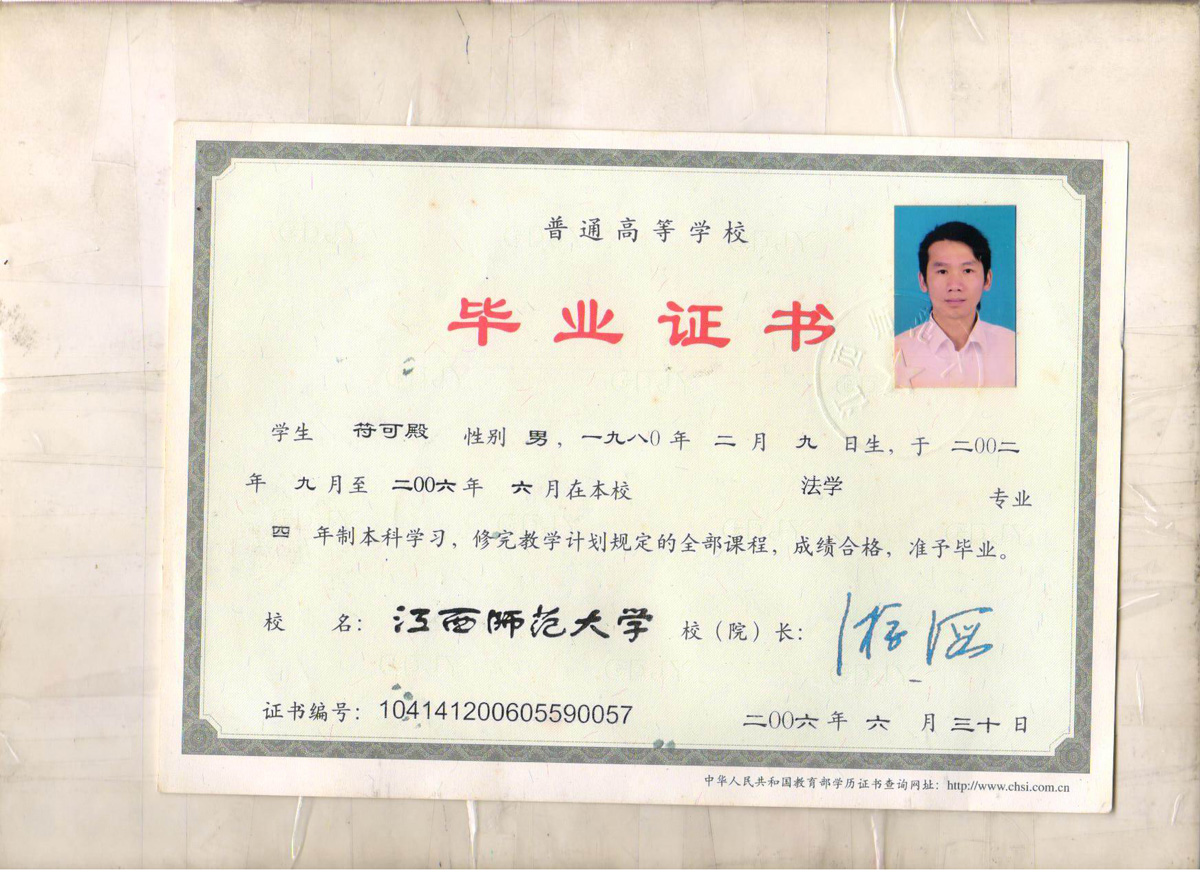 普通高等学校
毕业证书
学生 符可殿 性别 男，一九八〇年 二 月 九 日生，于 二〇〇二
年 九 月至 二〇〇六年 六 月在本校 法学 专业
四 年制本科学习，修完教学计划规定的全部课程，成绩合格，准予毕业。
校 名：江西师范大学 校（院）长：
证书编号：104141200605590057 二〇〇六年 六 月三十日
中华人民共和国教育部学历证书查询网址：http://www.chsi.com.cn